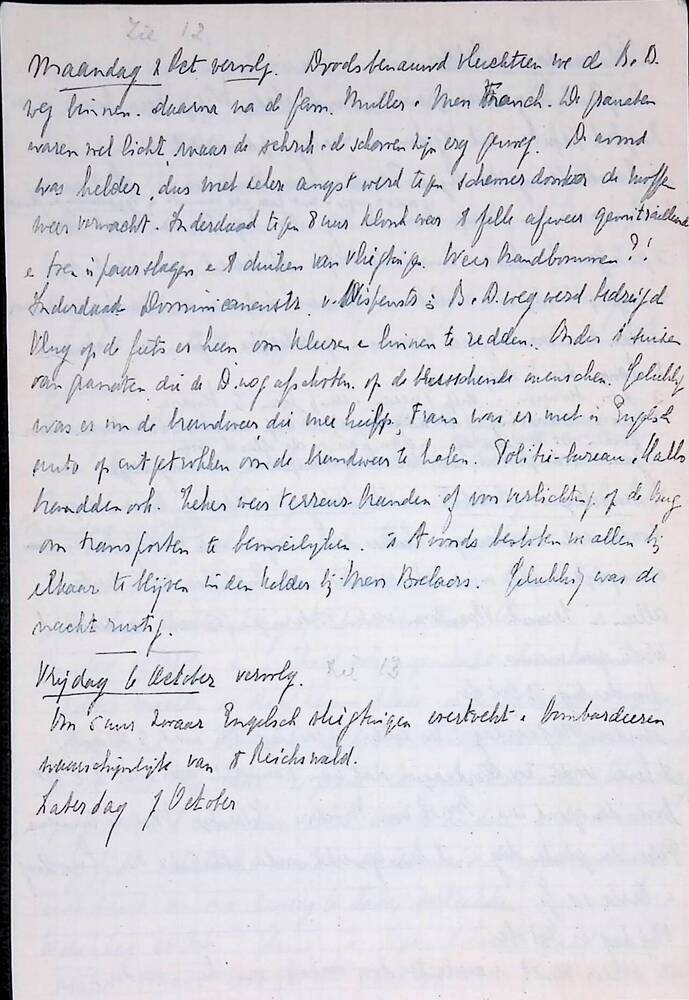 Zie 12
Maandag 2 Oct vervolg. Doodsbenauwd vluchtten we de B. D.
weg binnen. daarna na de fam. Muller e Mevr Franck. De granaten
waren wel licht maar de schrik e de scherven zijn erg genoeg. De avond
was helder, dus met zekere angst werd tegen schemerdonker de moffe
weer verwacht. Inderdaad tegen 8 uur klonk weer 't felle afweer
e toen 'n paar slagen e 't duiken van vliegtuigen. Weer brandbommen?!
Inderdaad Dominicanenstr. B. D. weg werd bedreigd
Vlug op de fiets er heen om kleeren e linnen te redden. Onder 't suizen
van granaten die de D. nog afschoten op de blusschende menschen. Gelukkig
was er nu de brandweer die mee hielp, Frans was er met 'n Engelsch
auto op uit getrokken om de brandweer te halen. Politie-bureau,
brandden ook. Zeker weer terreur-branden of voor verlichting op de brug
om transporten te bemoeilijken. 's Avonds besloten we allen bij
elkaar te blijven in den kelder bij Mevr Gelukkig was de
nacht rustig.
Zie 13
Vrijdag 6 October vervolg.
Om 5 uur zwaar Engelsch vliegtuigen overtocht e bombardeeren
waarschijnlijk van 't Reichswald.
Zaterdag 7 October